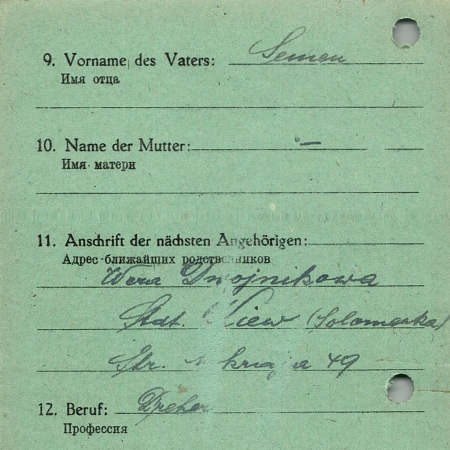 9. Vorname des Vaters: Semen
Имя отца
10. Name der Mutter: —
Имя матери
11. Anschrift der nächsten Angehörigen:
Адрес ближайших родственников
Wera Dwojnikowa
Stdt. Kiew (Solomenka)
Str. 49
12. Beruf: Dreher
Профессия